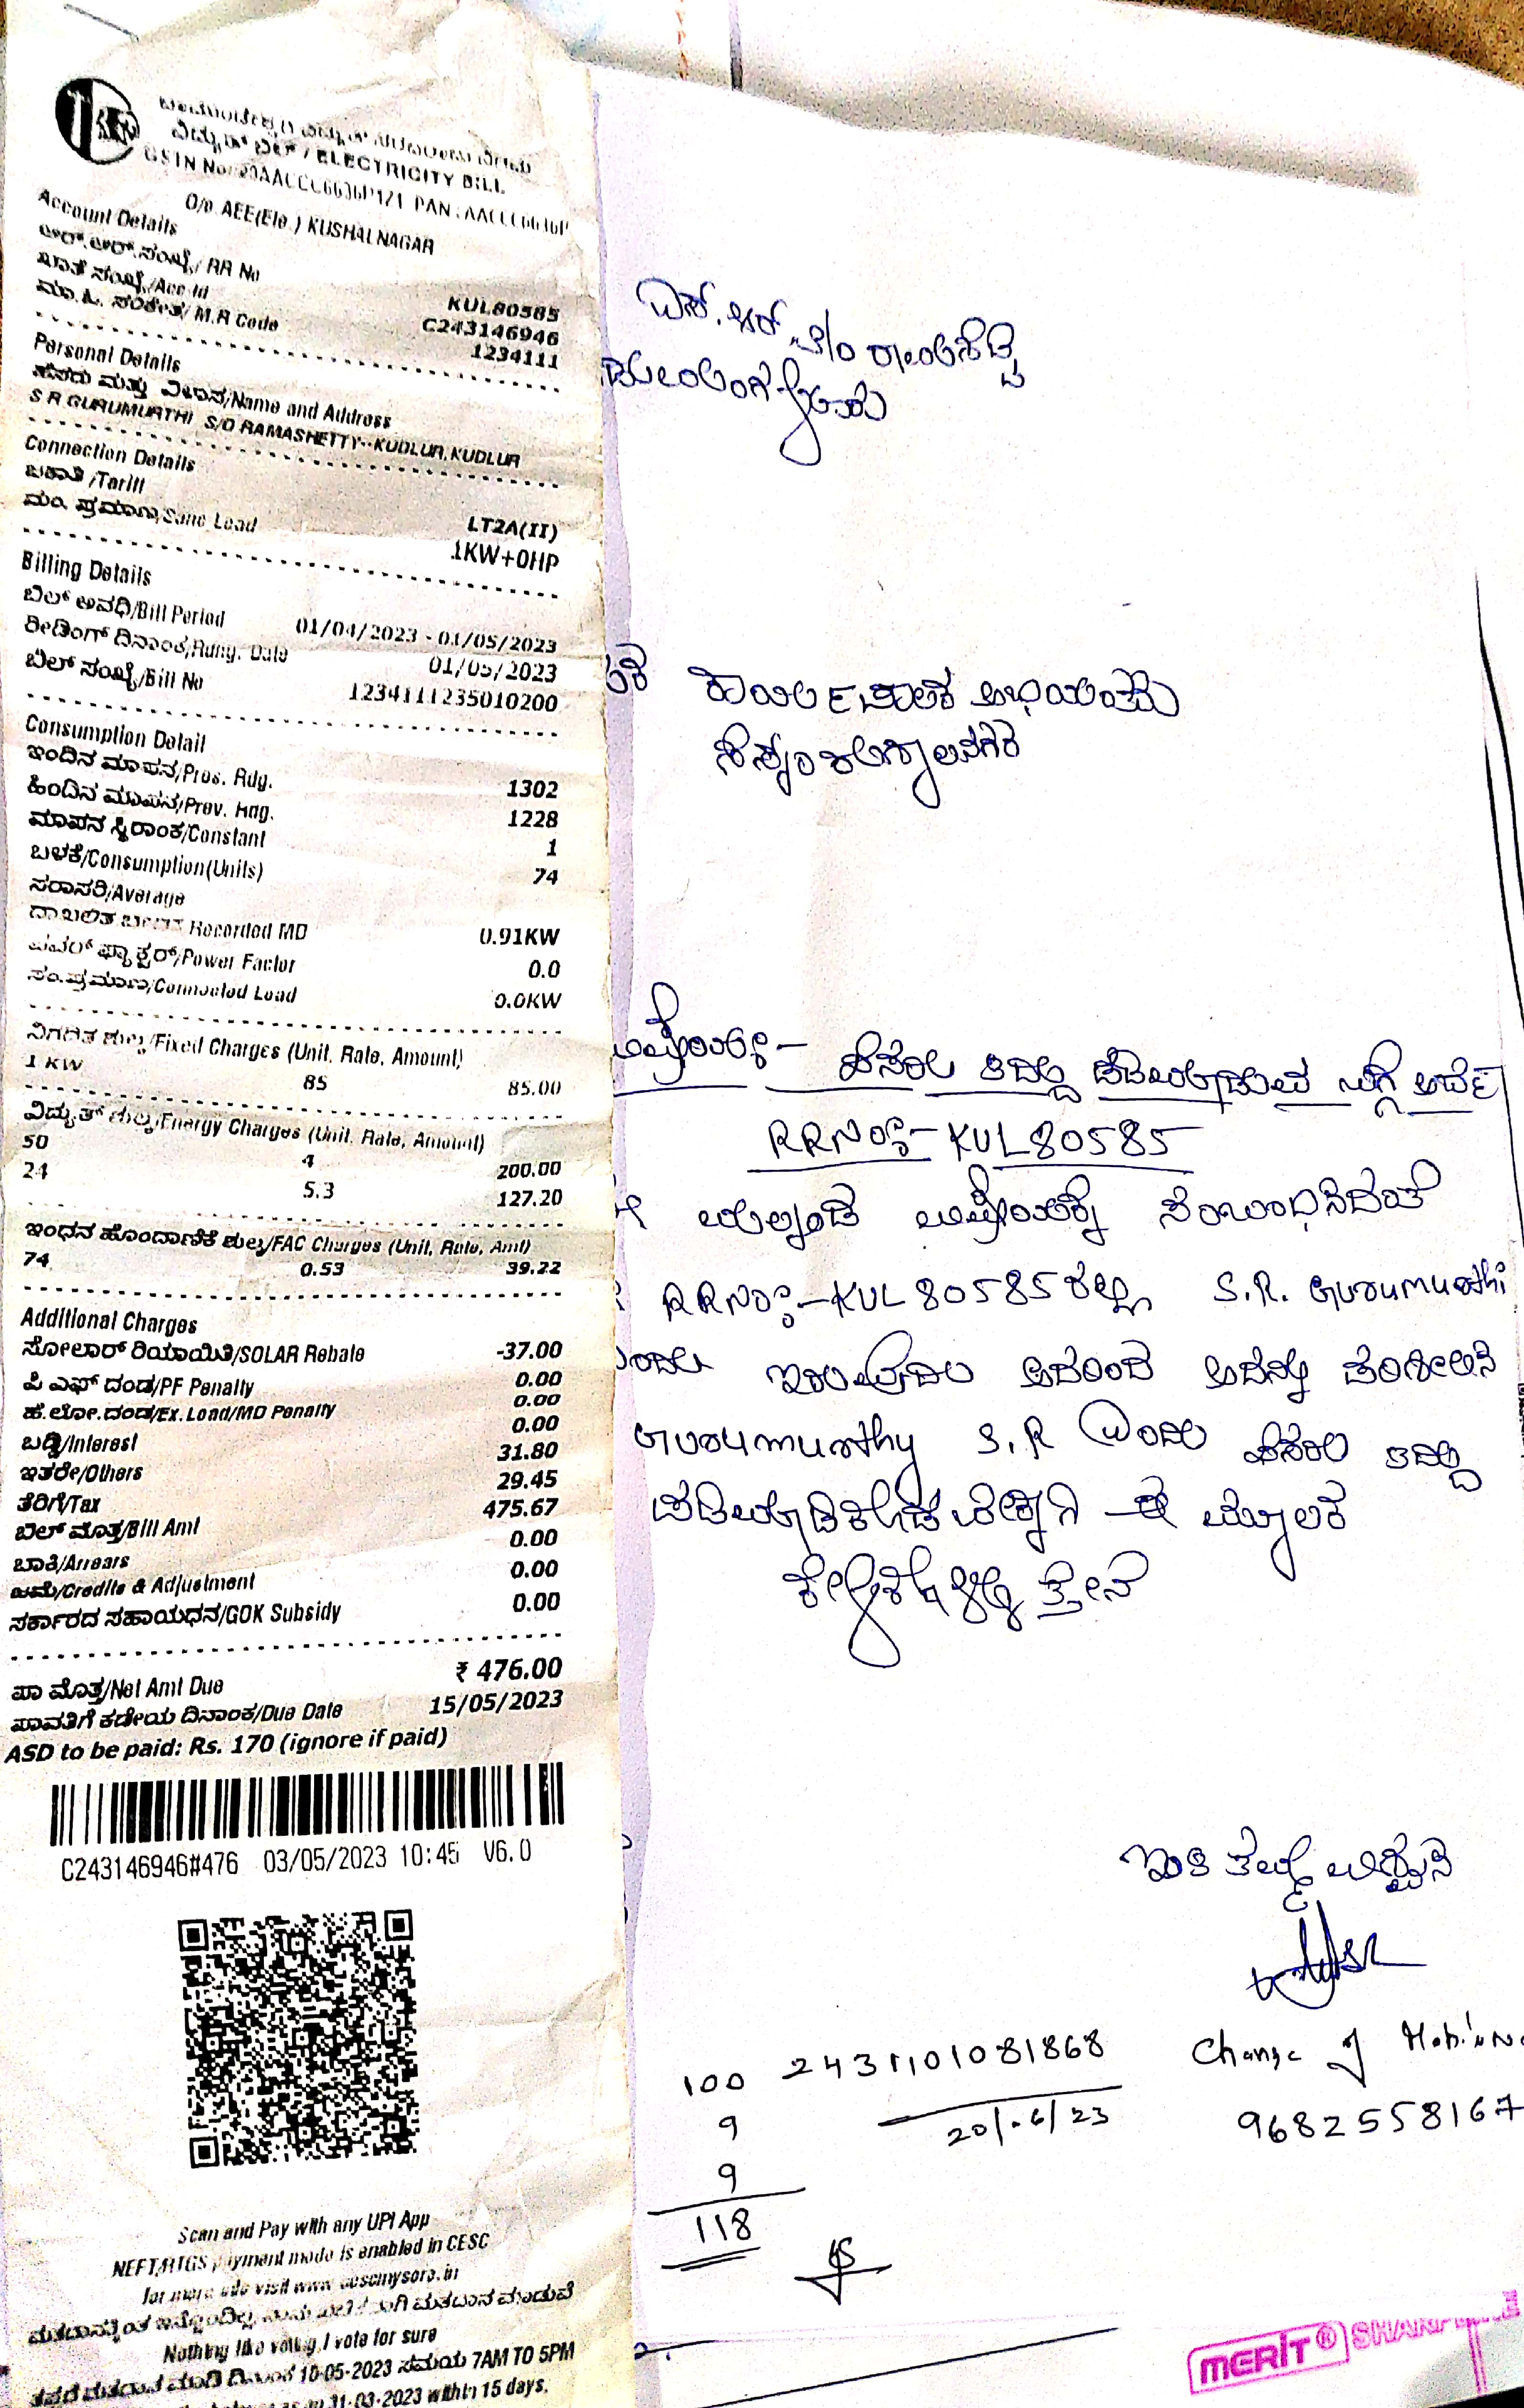 ವಿದ್ಯುತ್ ಬಿಲ್ / ELECTRICITY BILL
O/o AEE(Ele.) KUSHALNAGAR
Account Details
ಆರ್.ಆರ್.ಸಂಖ್ಯೆ/ RR No KUL80585
ಖಾತೆ ಸಂಖ್ಯೆ/Acc Id C243146946
ಮಾ.ಓ. ಸಂಕೇತ/ M.R Code 1234111
Personal Details
ಹೆಸರು ಮತ್ತು ವಿಳಾಸ/Name and Address
S R GURUMURTHI S/O RAMASHETTY--KUDLUR,KUDLUR
Connection Details
ಜಕಾತಿ /Tariff LT2A(II)
ಮಂ. ಪ್ರಮಾಣ/Sanc Load 1KW+0HP
Billing Details
ಬಿಲ್ ಅವಧಿ/Bill Period 01/04/2023 - 01/05/2023
ರೀಡಿಂಗ್ ದಿನಾಂಕ/Rdng. Date 01/05/2023
ಬಿಲ್ ಸಂಖ್ಯೆ/Bill No 1234111235010200
Consumption Detail
ಇಂದಿನ ಮಾಪನ/Pres. Rdg. 1302
ಹಿಂದಿನ ಮಾಪನ/Prev. Rdg. 1228
ಮಾಪನ ಸ್ಥಿರಾಂಕ/Constant 1
ಬಳಕೆ/Consumption(Units) 74
ಸರಾಸರಿ/Average
Recorded MD 0.91KW
ಪವರ್ ಫ್ಯಾಕ್ಟರ್/Power Factor 0.0
ಸಂ.ಪ್ರಮಾಣ/Connected Load 0.0KW
ನಿಗದಿತ ಶುಲ್ಕ/Fixed Charges (Unit, Rate, Amount)
1 KW 85 85.00
ವಿದ್ಯುತ್ ಶುಲ್ಕ/Energy Charges (Unit, Rate, Amount)
50 4 200.00
24 5.3 127.20
ಇಂಧನ ಹೊಂದಾಣಿಕೆ ಶುಲ್ಕ/FAC Charges (Unit, Rate, Amt)
74 0.53 39.22
Additional Charges
ಸೋಲಾರ್ ರಿಯಾಯಿತಿ/SOLAR Rebate -37.00
ಪಿ ಎಫ್ ದಂಡ/PF Penalty 0.00
ಹೆ.ಲೋ.ದಂಡ/Ex.Load/MD Penalty 0.00
ಬಡ್ಡಿ/Interest 0.00
ಇತರೇ/Others 31.80
ತೆರಿಗೆ/Tax 29.45
ಬಿಲ್ ಮೊತ್ತ/Bill Amt 475.67
ಬಾಕಿ/Arrears 0.00
ಜಮೆ/Credits & Adjustment 0.00
ಸರ್ಕಾರದ ಸಹಾಯಧನ/GOK Subsidy 0.00
ಪಾ ಮೊತ್ತ/Net Amt Due ₹ 476.00
ಪಾವತಿಗೆ ಕಡೇಯ ದಿನಾಂಕ/Due Date 15/05/2023
ASD to be paid: Rs. 170 (ignore if paid)
C243146946#476 03/05/2023 10:45 V6.0
Scan and Pay with any UPI App
NEFT/RTGS payment mode is enabled in CESC
for more info visit www.cescmysore.in
Nothing like voting, I vote for sure
10-05-2023 ಸಮಯ 7AM TO 5PM
31-03-2023 within 15 days.
ಎಸ್.ಆರ್ ರಾಮಶೆಟ್ಟಿ
ಕಾರ್ಯನಿರ್ವಾಹಕ ಅಭಿಯಂತರರು
ಹೆಸರು ತಿದ್ದುಪಡಿ ಬಗ್ಗೆ ಅರ್ಜಿ
RRNO:- KUL80585
ಸಂಬಂಧಿಸಿದಂತೆ
RRNO:-KUL80585ರಲ್ಲಿ S.R. Gurumurthi
ಎಂದು ಇರುವುದು ಅದನ್ನು
Gurumurthy S.R ಎಂದು ಹೆಸರು ತಿದ್ದು
ಈ ಮೂಲಕ
ಕೇಳಿಕೊಳ್ಳುತ್ತೇನೆ
ಇತಿ ತಮ್ಮ ವಿಶ್ವಾಸಿ
100 2431101081868 Change of Mobile No
9 20/-6/23 9682558167
9
118
MERIT® SHARP